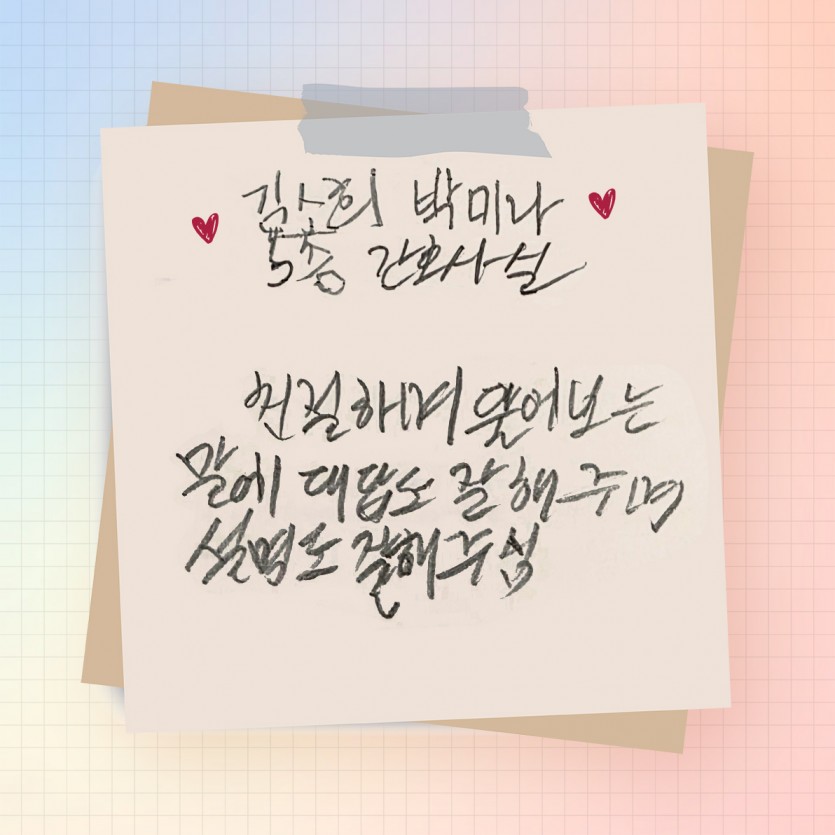 김소희 박미나
5층 간호사실
친절하며 물어보는
말에 대답도 잘해 주며
설명도 잘해주심